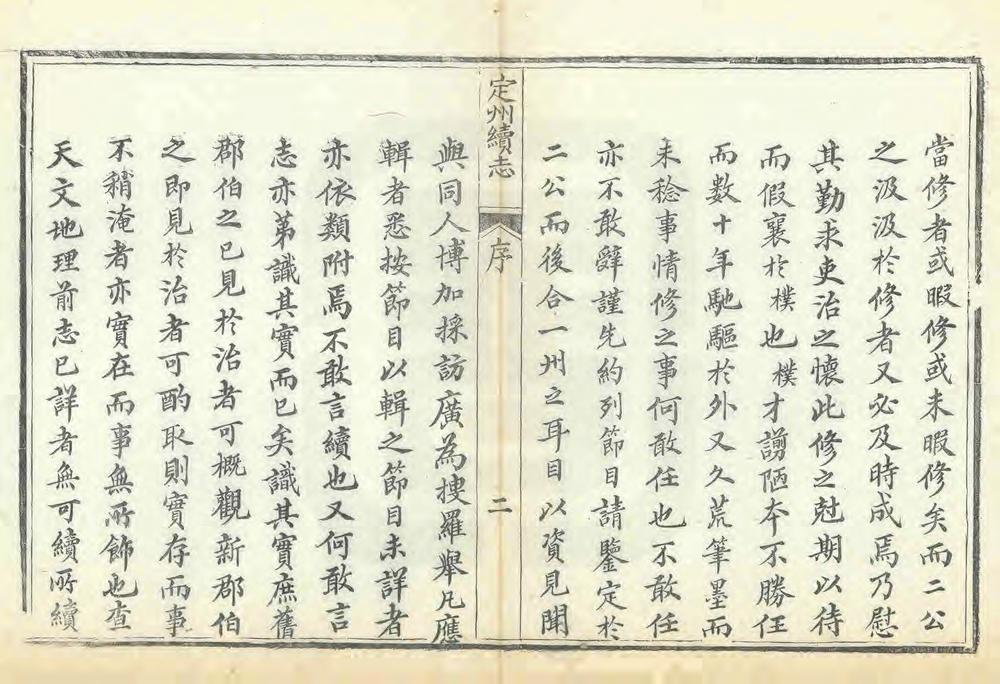 當修者或暇修或未暇修矣而二公
之汲汲於修者又必及時成焉乃慰
其勤求吏治之懷此修之尅期以待
而假襄於樸也樸才謭陋本不勝任
而數十年馳驅於外又久荒筆墨而
未稔事情修之事何敢任也不敢任
亦不敢辭謹先約列節目請鑒定於
二公而後合一州之耳目以資見聞
定州續志
序
二
與同人博加採訪廣為搜羅舉凡應
輯者悉按節目以輯之節目未詳者
亦依類附焉不敢言續也又何敢言
志亦第識其實而已矣識其實庶舊
郡伯之已見於治者可概觀新郡伯
之即見於治者可酌取則實存而事
不稍淹者亦實在而事無所飾也查
天文地理前志已詳者無可續所續